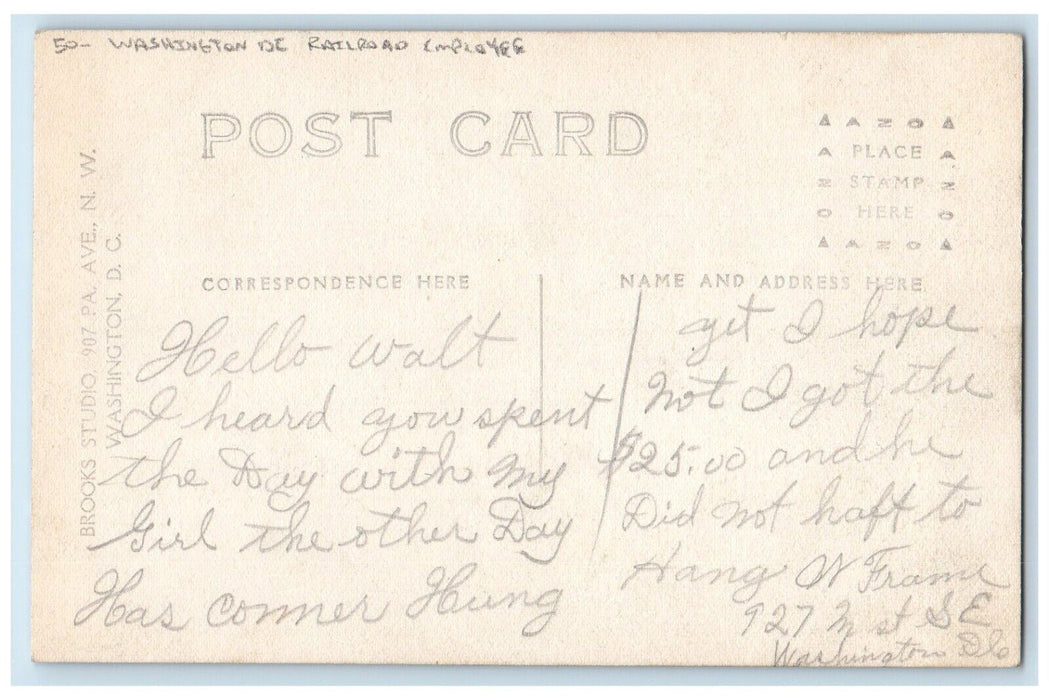 50- WASHINGTON DC RAILROAD EMPLOYEE
POST CARD
AZO
PLACE
STAMP
HERE
AZO
BROOKS STUDIO, 907 PA. AVE., N. W.
WASHINGTON, D. C.
CORRESPONDENCE HERE
Hello Walt
I heard you spent
the Day with my
Girl the other Day
Has conner Hung
NAME AND ADDRESS HERE
yet I hope
not I got the
$25.00 and he
Did not haft to
Hang W Frame
927 M st SE
Washington